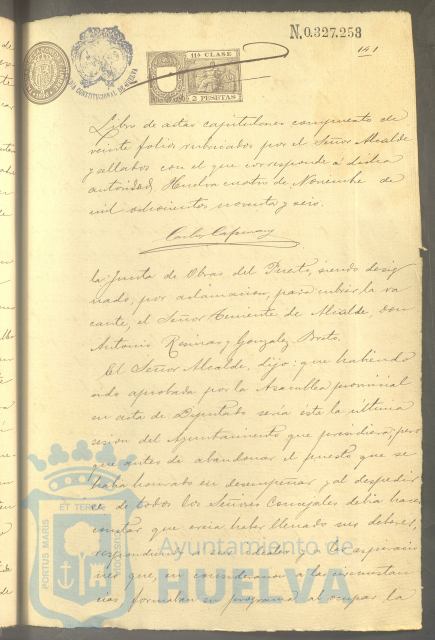 N.0.327.258
141
11ª CLASE
2 PESETAS
CONSTITUCIONAL DE HUELVA
Libro de actas capitulares compuesto de
veinte folios rubricados por el Señor Alcalde
y sellados con el que corresponde á dicha
autoridad. Huelva cuatro de Noviembre de
mil ochocientos noventa y seis.
la Junta de Obras del Puerto, siendo desig
nado, por aclamacion, para cubrir la va
cante, el Señor Teniente de Alcalde, don
Antonio y Gonzalez
El Señor Alcalde, dijo: que habiendo
sido aprobada por la Asamblea provincial
su acta de Diputado seria esta la última
sesion del Ayuntamiento que presidiera; pero
que antes de abandonar el puesto que se
habia honrado en desempeñar y al despedir
se de todos los Señores Concejales debia hacer
constar que creia haber llenado sus deberes,
respondiendo á
que, en
formaban su programa al ocupar la
ET TERRÆ
PORTUS MARIS
CUSTODIA
Ayuntamiento de
HUELVA